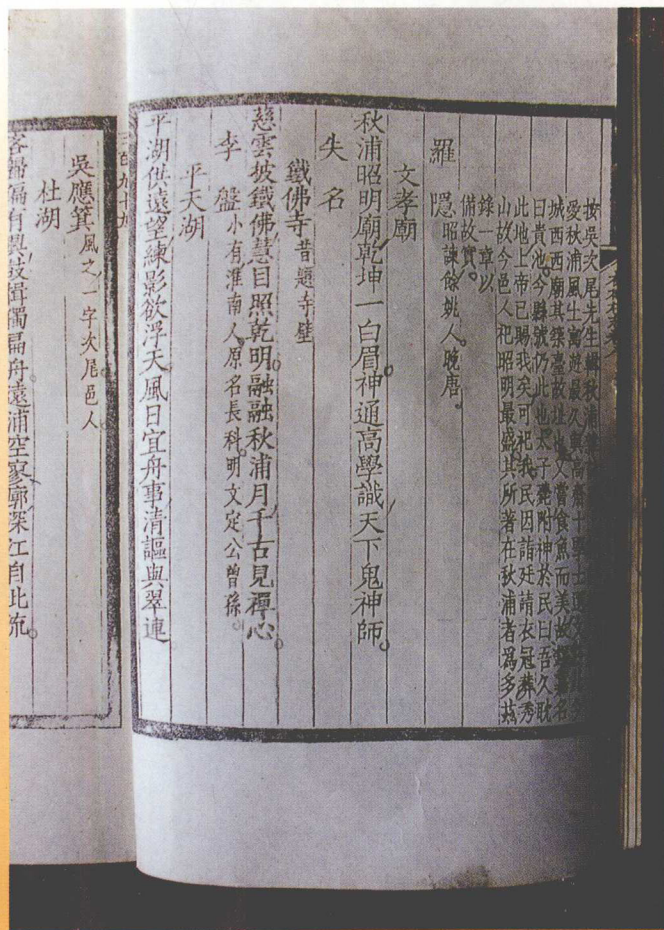 按吳次尾先生輯秋浦
愛秋浦風土寓遊最久與高齋十學士選文
城西西廟其築臺故址也又嘗食魚而美故錫嘉名
曰貴池今縣號仍此也太子薨附神於民曰吾久耽
此地上帝已賜我矣可祀我民因詣廷請衣冠葬秀
山故今邑人祀昭明最盛其所著在秋浦者爲多玆
錄一章以
備故實
羅隱昭諫餘姚人晚唐
文孝廟
秋浦昭明廟乾坤一白眉神通高學識天下鬼神師
失名
鐵佛寺昔題寺壁
慈雲披鐵佛慧目照乾明融融秋浦月千古見禪心
李盤小有淮南人原名長科明文定公曾孫
平天湖
平湖供遠望練影欲浮天風日宜舟事清謳與翠連
吳應箕風之一字次尾邑人
杜湖
客歸偏有興扁舟遠浦空寥廓深江自北流